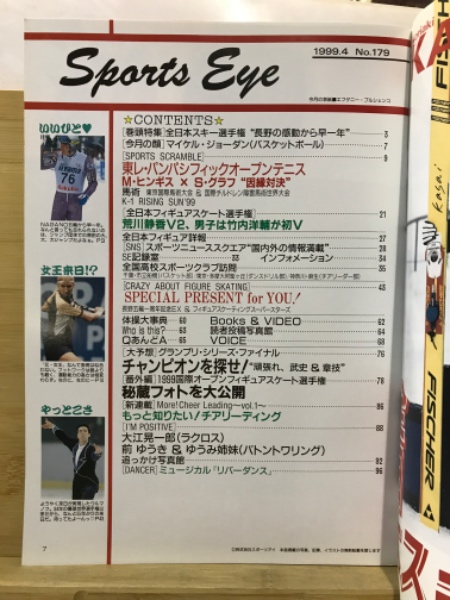 Sports Eye
1999.4 No.179
今月の表紙■エフゲニー・プルシェンコ
☆CONTENTS☆
[巻頭特集]全日本スキー選手権“長野の感動から早一年” 3
[今月の顔]マイケル・ジョーダン(バスケットボール) 7
[SPORTS SCRAMBLE] 9
東レ・パンパシフィックオープンテニス
M・ヒンギス×S・グラフ“因縁対決”
馬術 東京国際馬術大会 & 国際チルドレン障害馬術世界大会
K-1 RISING SUN'99
[全日本フィギュアスケート選手権] 21
荒川静香V2、男子は竹内洋輔が初V
全日本フィギュア詳報 27
[SNS]スポーツニューススクエア“国内外の情報満載” 28
SE記録室 33 インフォメーション 34
全国高校スポーツクラブ訪問 35
[CRAZY ABOUT FIGURE SKATING] 43
SPECIAL PRESENT for YOU!
長野五輪一周年記念EX & フィギュアスケーティングスーパースターズ
体操大事典 60 Books & VIDEO 62
Who is this? 63 読者投稿写真館 64
QあんどA 65 VOICE 68
[大予想]グランプリ・シリーズ・ファイナル 76
チャンピオンを探せ!“頑張れ、武史&章枝”
[番外編]1999国際オープンフィギュアスケート選手権 78
秘蔵フォトを大公開
[新連載]More!Cheer Leading〜vol.1〜 86
もっと知りたい!チアリーディング
[I'M POSITIVE] 88
大江晃一郎(ラクロス)
前 ゆうき & ゆうみ姉妹(バトントワリング)
追っかけ写真館 92
[DANCER]ミュージカル『リバーダンス』 96
いいひと♥
76
女王来日!?
やっとこさ
7
FISCHER